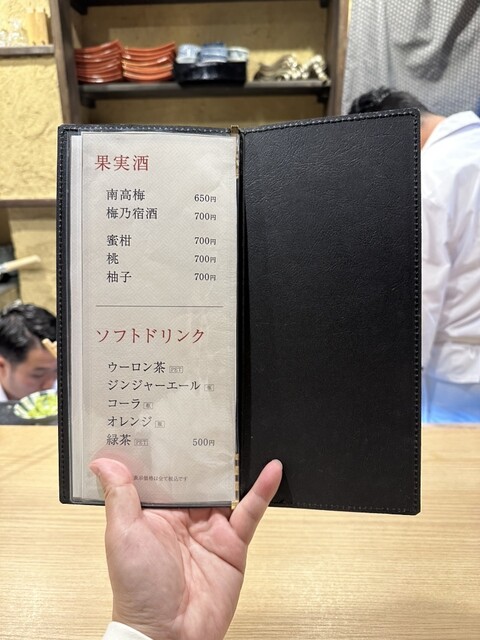 果実酒
南高梅 650円
梅乃宿酒 700円
蜜柑 700円
桃 700円
柚子 700円
ソフトドリンク
ウーロン茶 PET
ジンジャーエール 瓶
コーラ 瓶
オレンジ 瓶
緑茶 PET 500円
表示価格は全て税込です